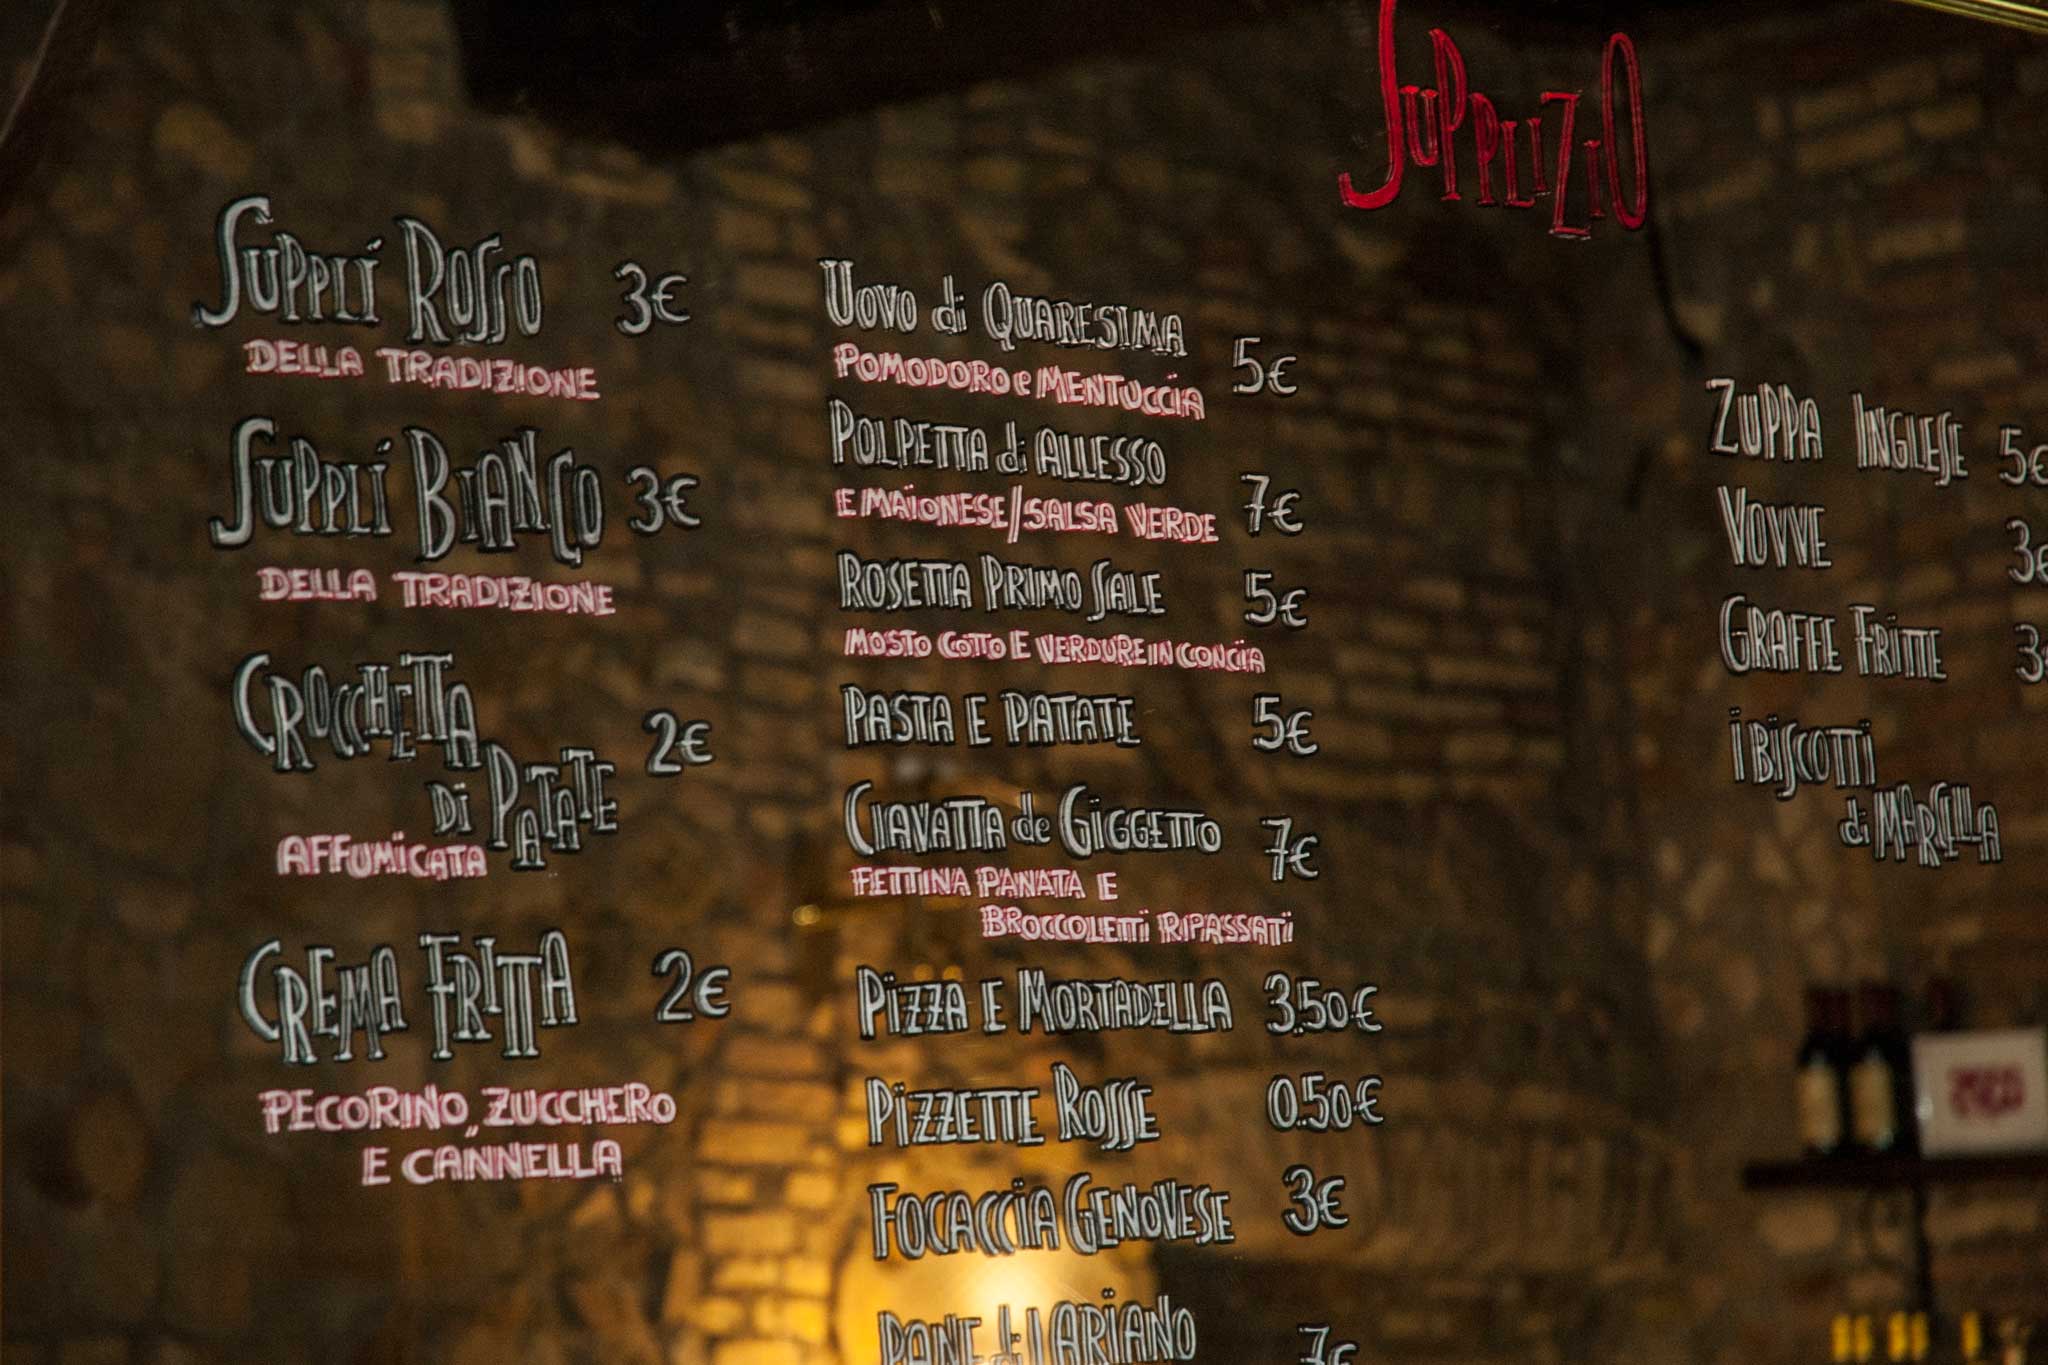 SUPPLIZIO
SUPPLÍ ROSSO 3€
DELLA TRADIZIONE
SUPPLÍ BIANCO 3€
DELLA TRADIZIONE
CROCCHETTA
DI PATATE 2€
AFFUMICATA
CREMA FRITTA 2€
PECORINO, ZUCCHERO
E CANNELLA
UOVO di QUARESIMA 5€
POMODORO e MENTUCCIA
POLPETTA di ALLESSO
E MAIONESE/SALSA VERDE 7€
ROSETTA PRIMO SALE 5€
MOSTO COTTO E VERDURE IN CONCIA
PASTA E PATATE 5€
CIAVATTA de GIGGETTO 7€
FETTINA PANATA E
BROCCOLETTI RIPASSATI
PIZZA E MORTADELLA 3.50€
PIZZETTE ROSSE 0.50€
FOCACCIA GENOVESE 3€
PANE di LARIANO 7€
ZUPPA INGLESE 5€
VOVVE 3€
GRAFFE FRITTE 3
I BISCOTTI
di MARSILLA